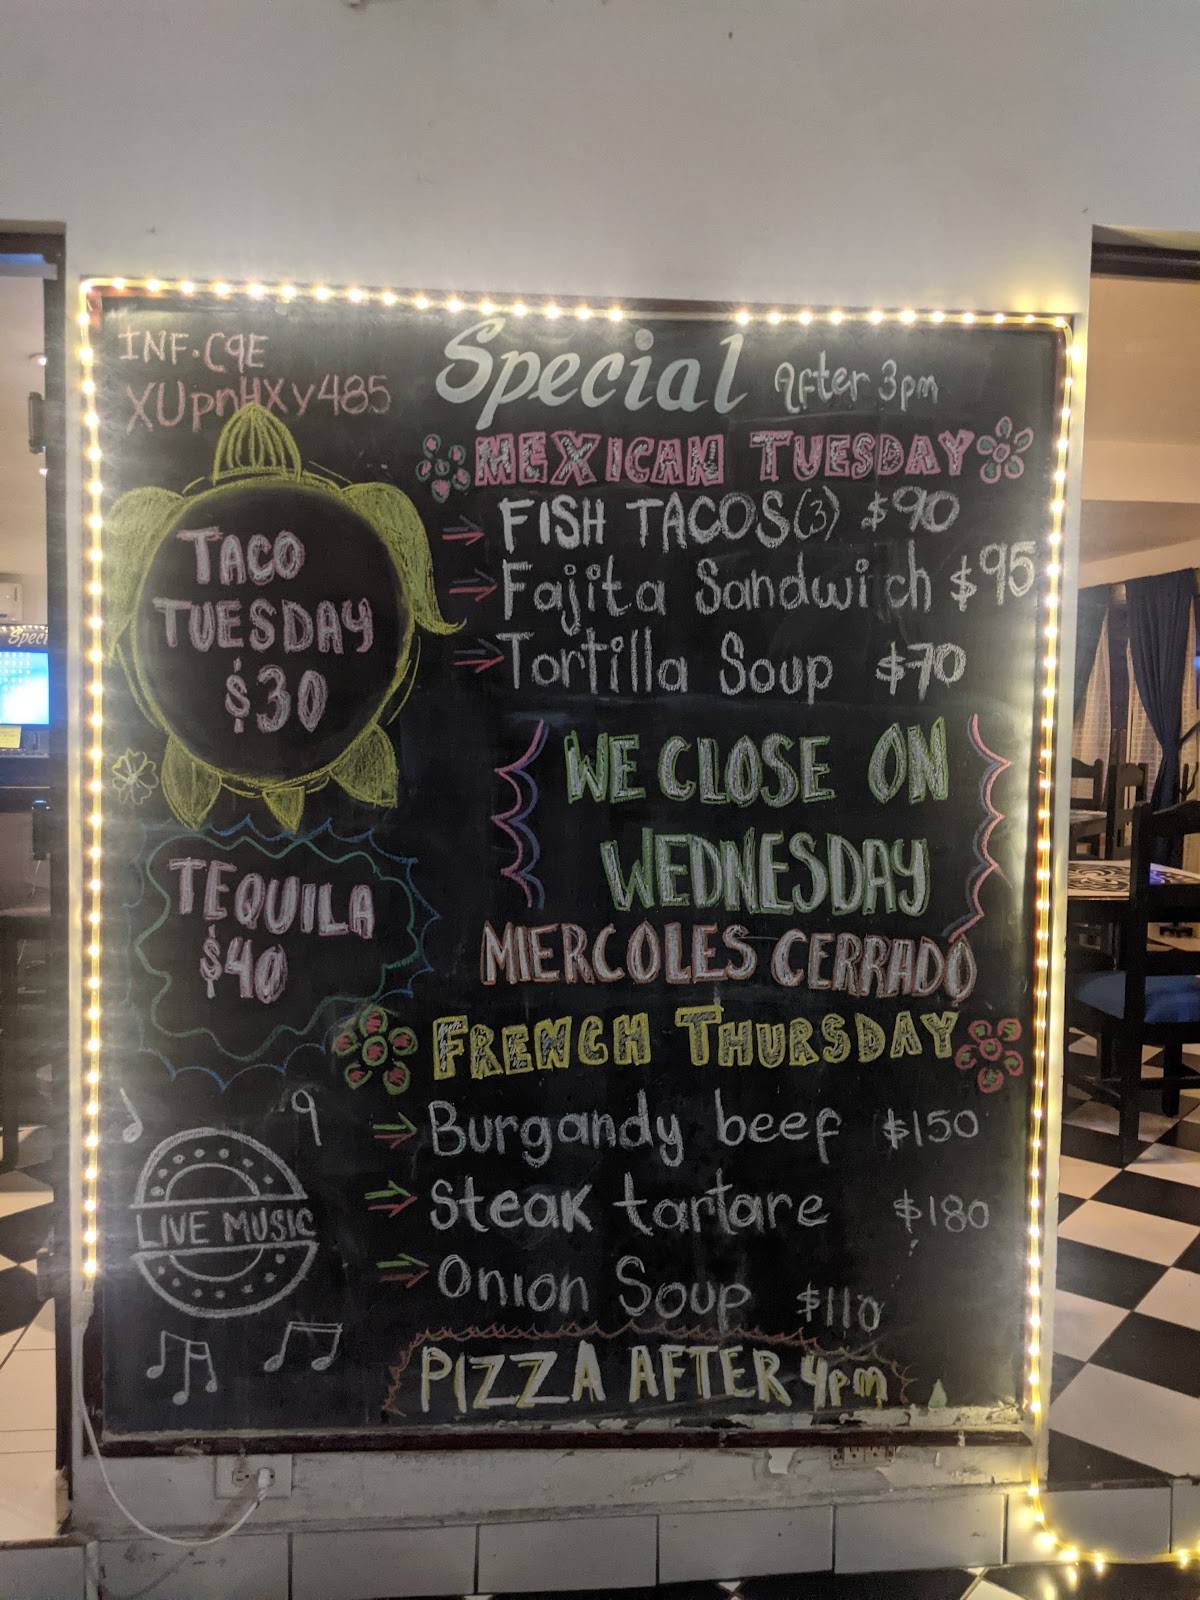 INF. C9E
XUpnHXy485
Special After 3pm
MEXICAN TUESDAY
FISH TACOS (3) $90
Fajita Sandwich $95
Tortilla Soup $70
TACO
TUESDAY
$30
WE CLOSE ON
WEDNESDAY
MIERCOLES CERRADO
TEQUILA
$40
FRENCH THURSDAY
Burgandy beef $150
Steak tartare $180
Onion Soup $110
LIVE MUSIC
PIZZA AFTER 4pm